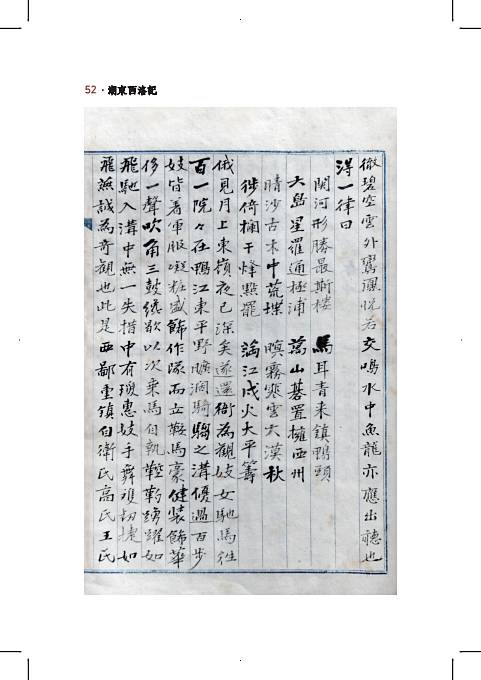 52 · 湖東西洛記
徹碧空雲外鸞鳳怳若交鳴水中魚龍亦應出聽也
得一律曰
関河形勝最斯楼 馬耳青来鎮鴨頭
大島星羅通極浦 萬山碁置擁西州
晴沙古木中荒堞 暝霧寒雲大漠秋
徙倚欄干烽點罷 滿江戍火大平籌
俄見月上東嶺夜已深矣遂還衙為觀妓女馳馬往
百一院々在鴨江東平野曠濶騎騶之溝優過百步
妓皆着軍服凝粧盛餝作隊而立鞍馬豪健裝餝華
侈一聲吹角三鼓纔歇以次乗馬自執鞚勒踴躍如
飛馳入溝中無一失措中有瓊惠妓手舞複刼捷如
飛燕誠為奇觀也此是西鄙重鎮自衛氏高氏王氏